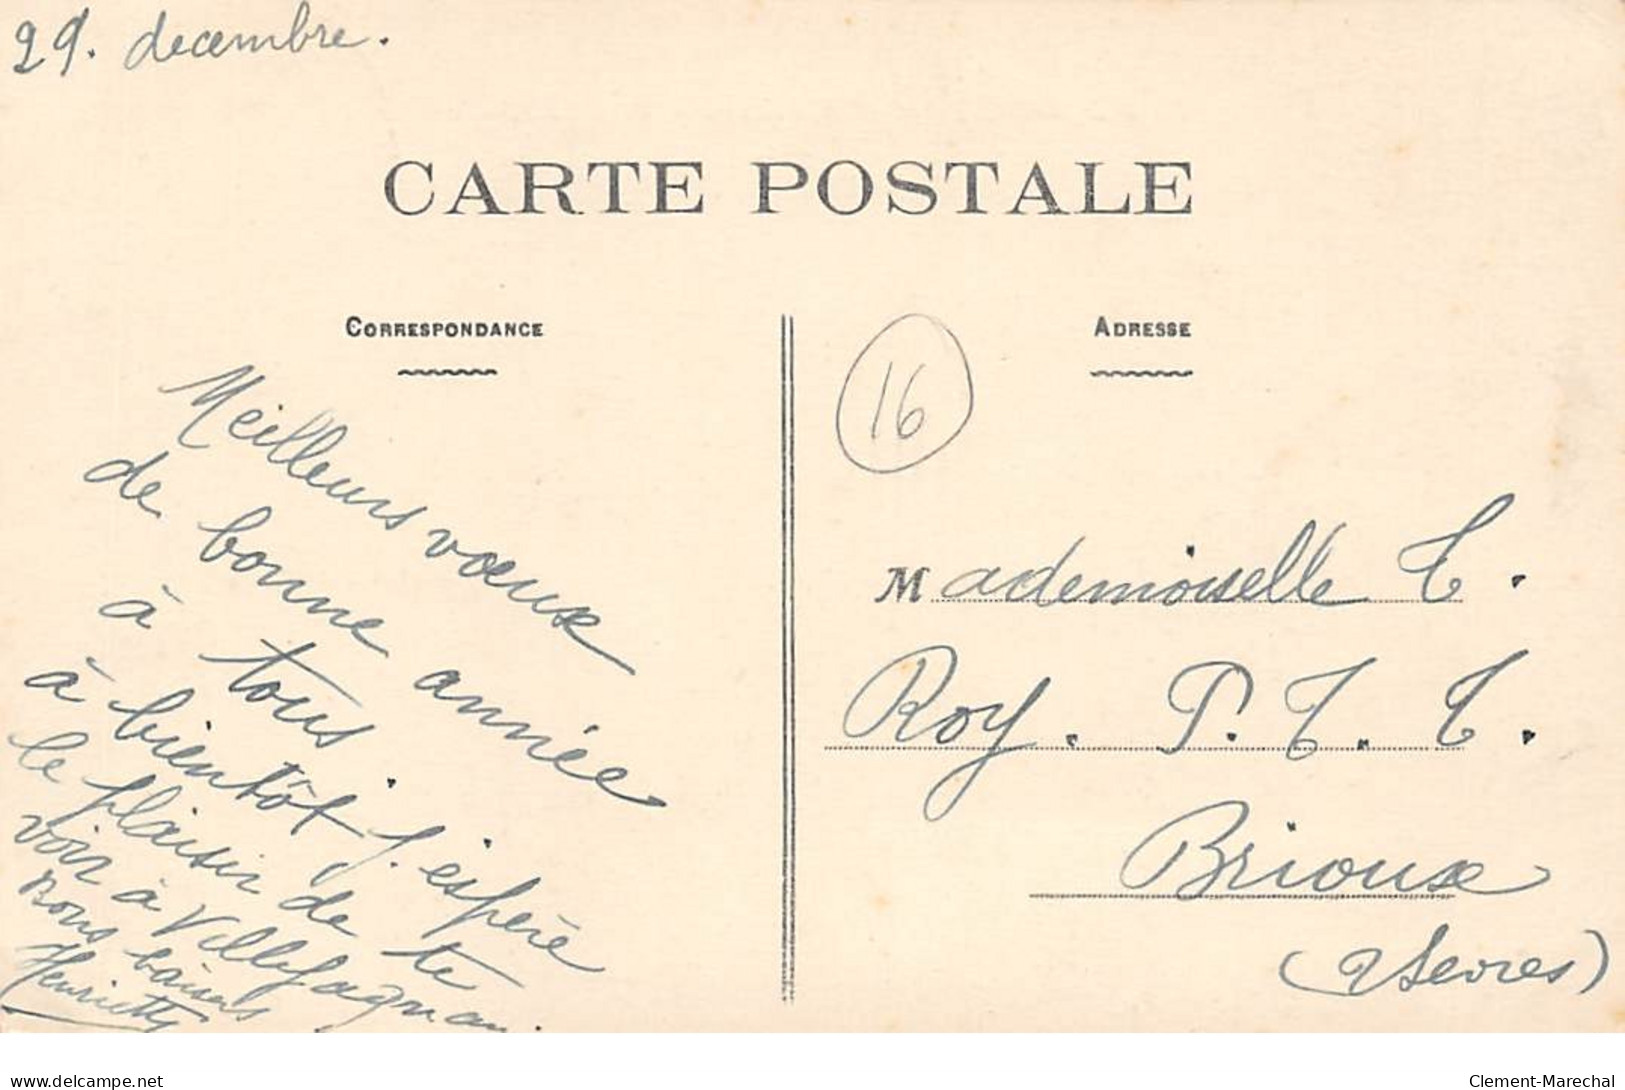 29. decembre.
CARTE POSTALE
CORRESPONDANCE
Meilleurs vœux
de bonne année
à tous.
à bientôt j'espère
le plaisir de te
voir à Villefagnan.
Bons baisers
Henriette
ADRESSE
16
Mademoiselle T.
Roy. P. T. T.
Brioux
(2 Sevres)
delcampe.net
Clement-Marechal